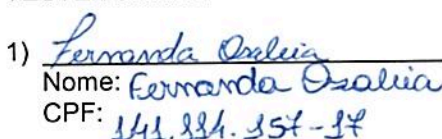 1) Fernanda Ozaleia
Nome: Fernanda Ozaleia
CPF: 141.114.157-17